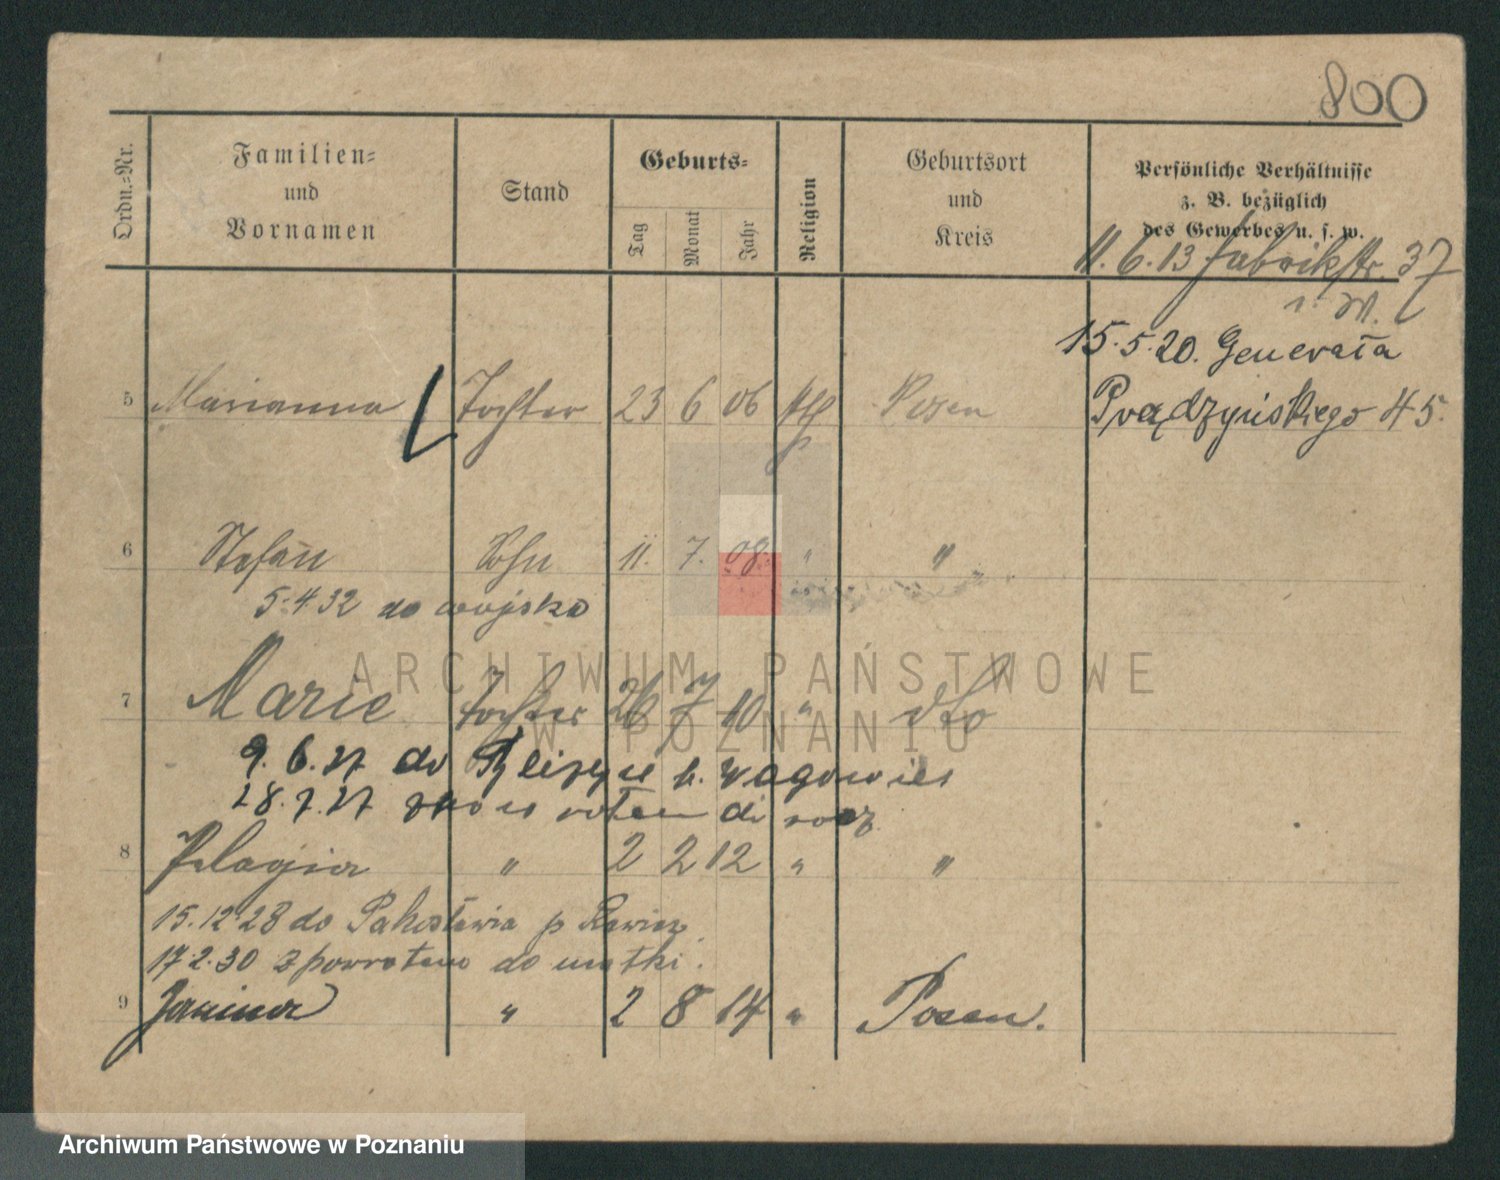 800
Ordn.=Nr.
Familien=
und
Vornamen
Stand
Geburts=
Tag
Monat
Jahr
Religion
Geburtsort
und
Kreis
Persönliche Verhältnisse
z. B. bezüglich
des Gewerbes u. s. w.
11. 6. 13 Fabrikstr. 37
15. 5. 20. Generała
Prądzyńskiego 45.
5 Marianna Tochter 23 6 06 kth Posen
6 Stefan Sohn 11. 7. 08. " "
5.4.32 do wojska
7 Marie Tochter 26 7 10 " dto
9. 6. 27 do
28. 7. 27 do
8 Pelagia " 2 2 12 " "
15.12 28 do Pakosławia p Rawicz.
17.2.30 z powrotem do matki.
9 Janina " 2 8 14 " Posen.
ARCHIWUM PAŃSTWOWE
W POZNANIU
Archiwum Państwowe w Poznaniu